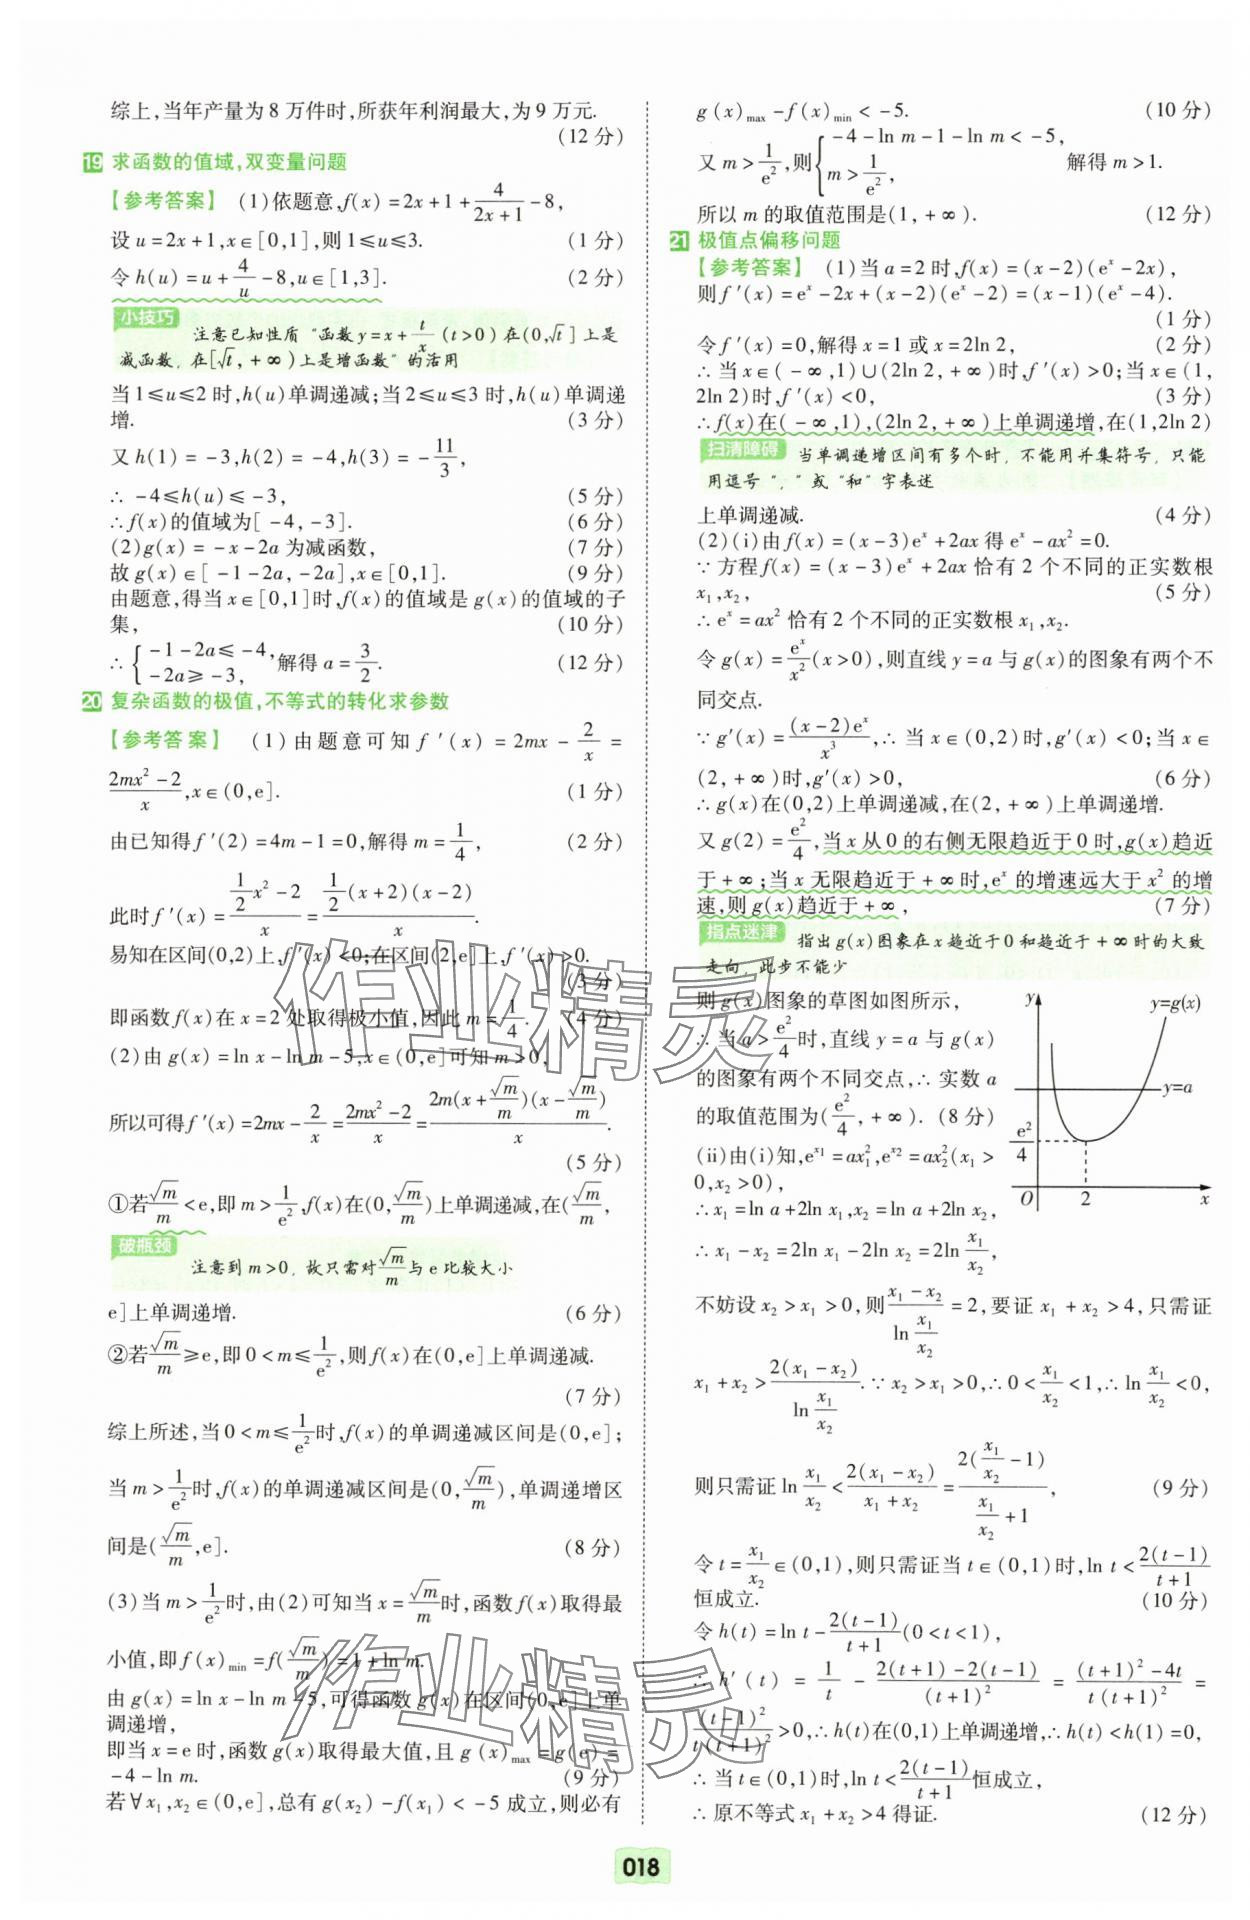 综上,当年产量为 8 万件时,所获年利润最大,为 9 万元.
(12 分)
19 求函数的值域,双变量问题
【参考答案】 (1)依题意,f(x)=2x+1+4/(2x+1)-8,
设 u=2x+1,x∈[0,1],则 1≤u≤3. (1 分)
令 h(u)=u+4/u-8,u∈[1,3]. (2 分)
小技巧 注意已知性质“函数 y=x+t/x(t>0)在(0,√t]上是
减函数,在[√t,+∞)上是增函数”的活用
当 1≤u≤2 时,h(u)单调递减;当 2≤u≤3 时,h(u)单调递
增. (3 分)
又 h(1)=-3,h(2)=-4,h(3)=-11/3,
∴ -4≤h(u)≤-3, (5 分)
∴f(x)的值域为[-4,-3]. (6 分)
(2)g(x)=-x-2a 为减函数, (7 分)
故 g(x)∈[-1-2a,-2a],x∈[0,1]. (9 分)
由题意,得当 x∈[0,1]时,f(x)的值域是 g(x)的值域的子
集, (10 分)
∴ {-1-2a≤-4, -2a≥-3, 解得 a=3/2. (12 分)
20 复杂函数的极值,不等式的转化求参数
【参考答案】 (1)由题意可知 f′(x)=2mx-2/x=
(2mx²-2)/x,x∈(0,e]. (1 分)
由已知得 f′(2)=4m-1=0,解得 m=1/4, (2 分)
此时 f′(x)=(1/2x²-2)/x=(1/2(x+2)(x-2))/x.
易知在区间(0,2)上,f′(x)<0;在区间(2,e]上,f′(x)>0.
(3 分)
即函数 f(x)在 x=2 处取得极小值,因此 m=1/4. (4 分)
(2)由 g(x)=ln x-ln m-5,x∈(0,e]可知 m>0,
所以可得 f′(x)=2mx-2/x=(2mx²-2)/x=2m(x+√m/m)(x-√m/m)/x.
(5 分)
①若√m/m<e,即 m>1/e²,f(x)在(0,√m/m)上单调递减,在(√m/m,
破瓶颈 注意到 m>0,故只需对√m/m与 e 比较大小
e]上单调递增. (6 分)
②若√m/m≥e,即 0<m≤1/e²,则 f(x)在(0,e]上单调递减.
(7 分)
综上所述,当 0<m≤1/e²时,f(x)的单调递减区间是(0,e];
当 m>1/e²时,f(x)的单调递减区间是(0,√m/m),单调递增区
间是(√m/m,e]. (8 分)
(3)当 m>1/e²时,由(2)可知当 x=√m/m时,函数 f(x)取得最
小值,即 f(x)min=f(√m/m)=1+ln m.
由 g(x)=ln x-ln m-5,可得函数 g(x)在区间(0,e]上单
调递增,
即当 x=e 时,函数 g(x)取得最大值,且 g(x)max=g(e)=
-4-ln m. (9 分)
若∀x₁,x₂∈(0,e],总有 g(x₂)-f(x₁)<-5 成立,则必有
g(x)max-f(x)min<-5. (10 分)
又 m>1/e²,则{-4-ln m-1-ln m<-5, m>1/e², 解得 m>1.
所以 m 的取值范围是(1,+∞). (12 分)
21 极值点偏移问题
【参考答案】 (1)当 a=2 时,f(x)=(x-2)(eˣ-2x),
则 f′(x)=eˣ-2x+(x-2)(eˣ-2)=(x-1)(eˣ-4).
(1 分)
令 f′(x)=0,解得 x=1 或 x=2ln 2, (2 分)
∴ 当 x∈(-∞,1)∪(2ln 2,+∞)时,f′(x)>0;当 x∈(1,
2ln 2)时,f′(x)<0, (3 分)
∴f(x)在(-∞,1),(2ln 2,+∞)上单调递增,在(1,2ln 2)
扫清障碍 当单调递增区间有多个时,不能用并集符号,只能
用逗号“,”或“和”字表述
上单调递减. (4 分)
(2)(i)由 f(x)=(x-3)eˣ+2ax 得 eˣ-ax²=0.
∵ 方程 f(x)=(x-3)eˣ+2ax 恰有 2 个不同的正实数根
x₁,x₂, (5 分)
∴ eˣ=ax² 恰有 2 个不同的正实数根 x₁,x₂.
令 g(x)=eˣ/x²(x>0),则直线 y=a 与 g(x)的图象有两个不
同交点.
∵ g′(x)=(x-2)eˣ/x³,∴ 当 x∈(0,2)时,g′(x)<0;当 x∈
(2,+∞)时,g′(x)>0, (6 分)
∴ g(x)在(0,2)上单调递减,在(2,+∞)上单调递增.
又 g(2)=e²/4,当 x 从 0 的右侧无限趋近于 0 时,g(x)趋近
于+∞;当 x 无限趋近于+∞时,eˣ 的增速远大于 x² 的增
速,则 g(x)趋近于+∞, (7 分)
指点迷津 指出 g(x)图象在 x 趋近于 0 和趋近于+∞时的大致
走向,此步不能少
则 g(x)图象的草图如图所示,
∴ 当 a>e²/4时,直线 y=a 与 g(x)
的图象有两个不同交点,∴ 实数 a
的取值范围为(e²/4,+∞). (8 分)
(ii)由(i)知,eˣ¹=ax₁²,eˣ²=ax₂²(x₁>
0,x₂>0),
∴ x₁=ln a+2ln x₁,x₂=ln a+2ln x₂,
y
y=g(x)
y=a
e²/4
O 2 x
∴ x₁-x₂=2ln x₁-2ln x₂=2ln x₁/x₂,
不妨设 x₂>x₁>0,则(x₁-x₂)/(ln x₁/x₂)=2,要证 x₁+x₂>4,只需证
x₁+x₂>2(x₁-x₂)/(ln x₁/x₂).∵ x₂>x₁>0,∴ 0<x₁/x₂<1,∴ ln x₁/x₂<0,
则只需证 ln x₁/x₂<2(x₁-x₂)/(x₁+x₂)=2(x₁/x₂-1)/(x₁/x₂+1), (9 分)
令 t=x₁/x₂∈(0,1),则只需证当 t∈(0,1)时,ln t<2(t-1)/(t+1)
恒成立. (10 分)
令 h(t)=ln t-2(t-1)/(t+1)(0<t<1),
∴ h′(t)=1/t-(2(t+1)-2(t-1))/(t+1)²=((t+1)²-4t)/(t(t+1)²)=
(t-1)²/(t(t+1)²)>0,∴ h(t)在(0,1)上单调递增,∴ h(t)<h(1)=0,
∴ 当 t∈(0,1)时,ln t<2(t-1)/(t+1)恒成立,
∴ 原不等式 x₁+x₂>4 得证. (12 分)
018
作业精灵
作业精灵